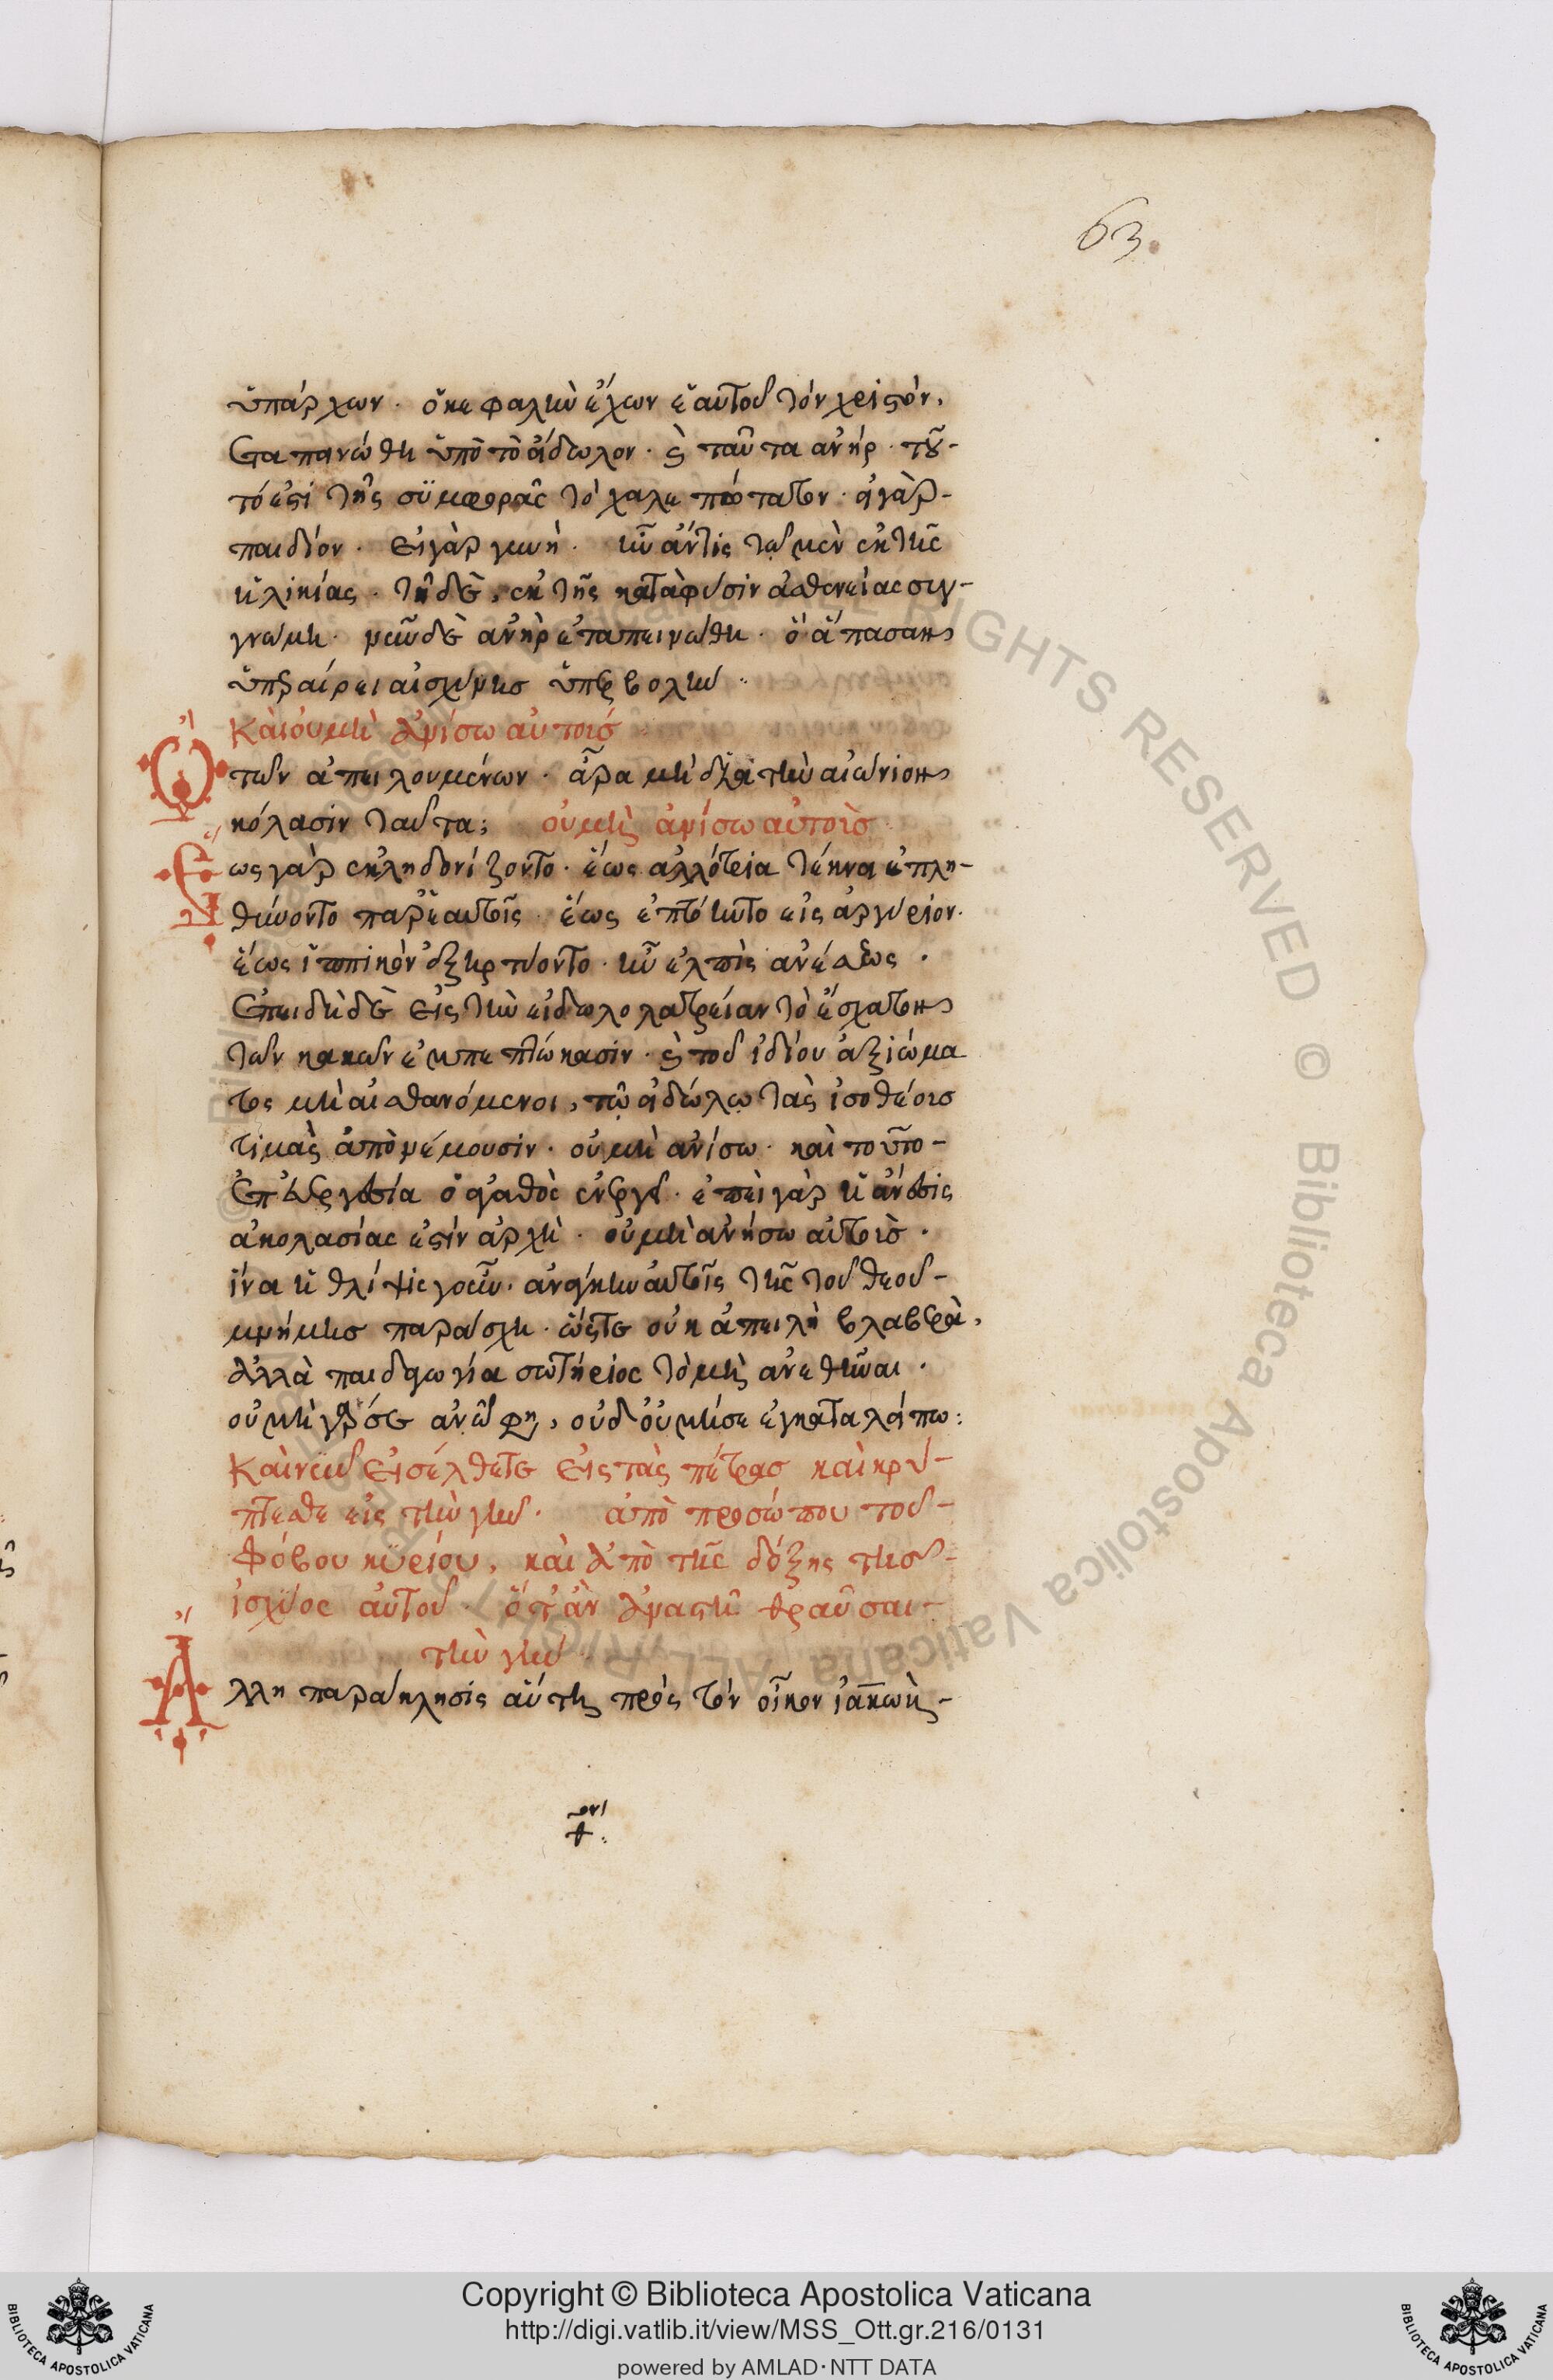 63.
ὑπάρχων. ὁ κεφαλὴν ἔχων ἑαυτοῦ τὸν χριστόν.
ἐταπεινώθη ὑπὸ τὸ εἴδωλον. καὶ ταῦτα ἀνήρ. τοῦ-
τό ἐστι τῆς συμφορᾶς τὸ χαλεπώτατον. εἰ γὰρ
παιδίον. εἰ γὰρ γυνὴ. ἦν ἄν τις τῶ μὲν ἐκ τῆς
ἡλικίας. τῆ δὲ, ἐκ τῆς κατὰ φύσιν ἀσθενείας συγ-
γνώμη. νῦν δὲ ἀνὴρ ἐταπεινώθη. ὃ ἅπασαν
ὑπεραίρει αἰσχύνης ὑπερβολήν
Καὶ οὐ μὴ ἀνίσω αὐτοισ
των ἀπειλουμένων. ἆρα μὴ διὰ τὴν αἰώνιον
κόλασιν ταῦτα; οὐ μὴ ἀνίσω αὐτοὶσ
ως γὰρ ἐκληδονίζοντο. ἕως ἀλλότρια τέκνα ἐπλη-
θύνοντο παρ' ἑαυτοῖς. ἕως ἐπτόηντο εἰς ἀργύριον.
ἕως ἱππικὸν ἐξηρτύοντο. ἦν ἐλπὶς ἀνέσεως.
Ἐπειδὴ δὲ εἰς τὴν εἰδωλολατρείαν τὸ ἔσχατον
τῶν κακῶν ἐκπεπτώκασιν. καὶ τοῦ ἰδίου ἀξιώμα
τος μὴ αἰσθανόμενοι, τῶ εἰδώλω τὰς ἰσοθέοισ
τιμὰς ἀπονέμουσιν. οὐ μὴ ἀνίσω. καὶ τοῦτο-
ἐπ' εὐεργεσία ὁ ἀγαθὸς ἐνεργεῖ. ἐπεὶ γὰρ ἡ ἄνεσις
ἀκολασίας ἐστὶν ἀρχὴ. οὐ μὴ ἀνήσω αὐτοὶσ.
ἵνα ἡ θλίψις γοῦν. ἀνάγκην αὐτοῖς τῆς τοῦ θεοῦ-
μνήμησ παράσχη. ὥστε οὐκ ἀπειλὴ βλαβερὰ,
ἀλλὰ παιδαγωγία σωτήριος τὸ μὴ ἀνεθῆναι.
οὐ μὴ γάρ σε ἀνῶ φη, οὐδ' οὐ μή σε ἐγκαταλείπω:
Καὶ νῦν εἰσέλθετε εἰς τὰς πέτρασ καὶ κρύ-
πτεσθε εἰς τὴν γῆν. ἀπὸ προσώπου τοῦ-
φόβου κυρίου, καὶ ἀπὸ τῆς δόξης τησ-
ἰσχύος αὐτοῦ. ὅταν ἀναστῆ θραῦσαι-
τὴν γῆν.
Ἄλλη παράκλησις αὕτη πρὸς τὸν οἶκον ἰακὼβ-
Copyright © Biblioteca Apostolica Vaticana
http://digi.vatlib.it/view/MSS_Ott.gr.216/0131
powered by AMLAD·NTT DATA